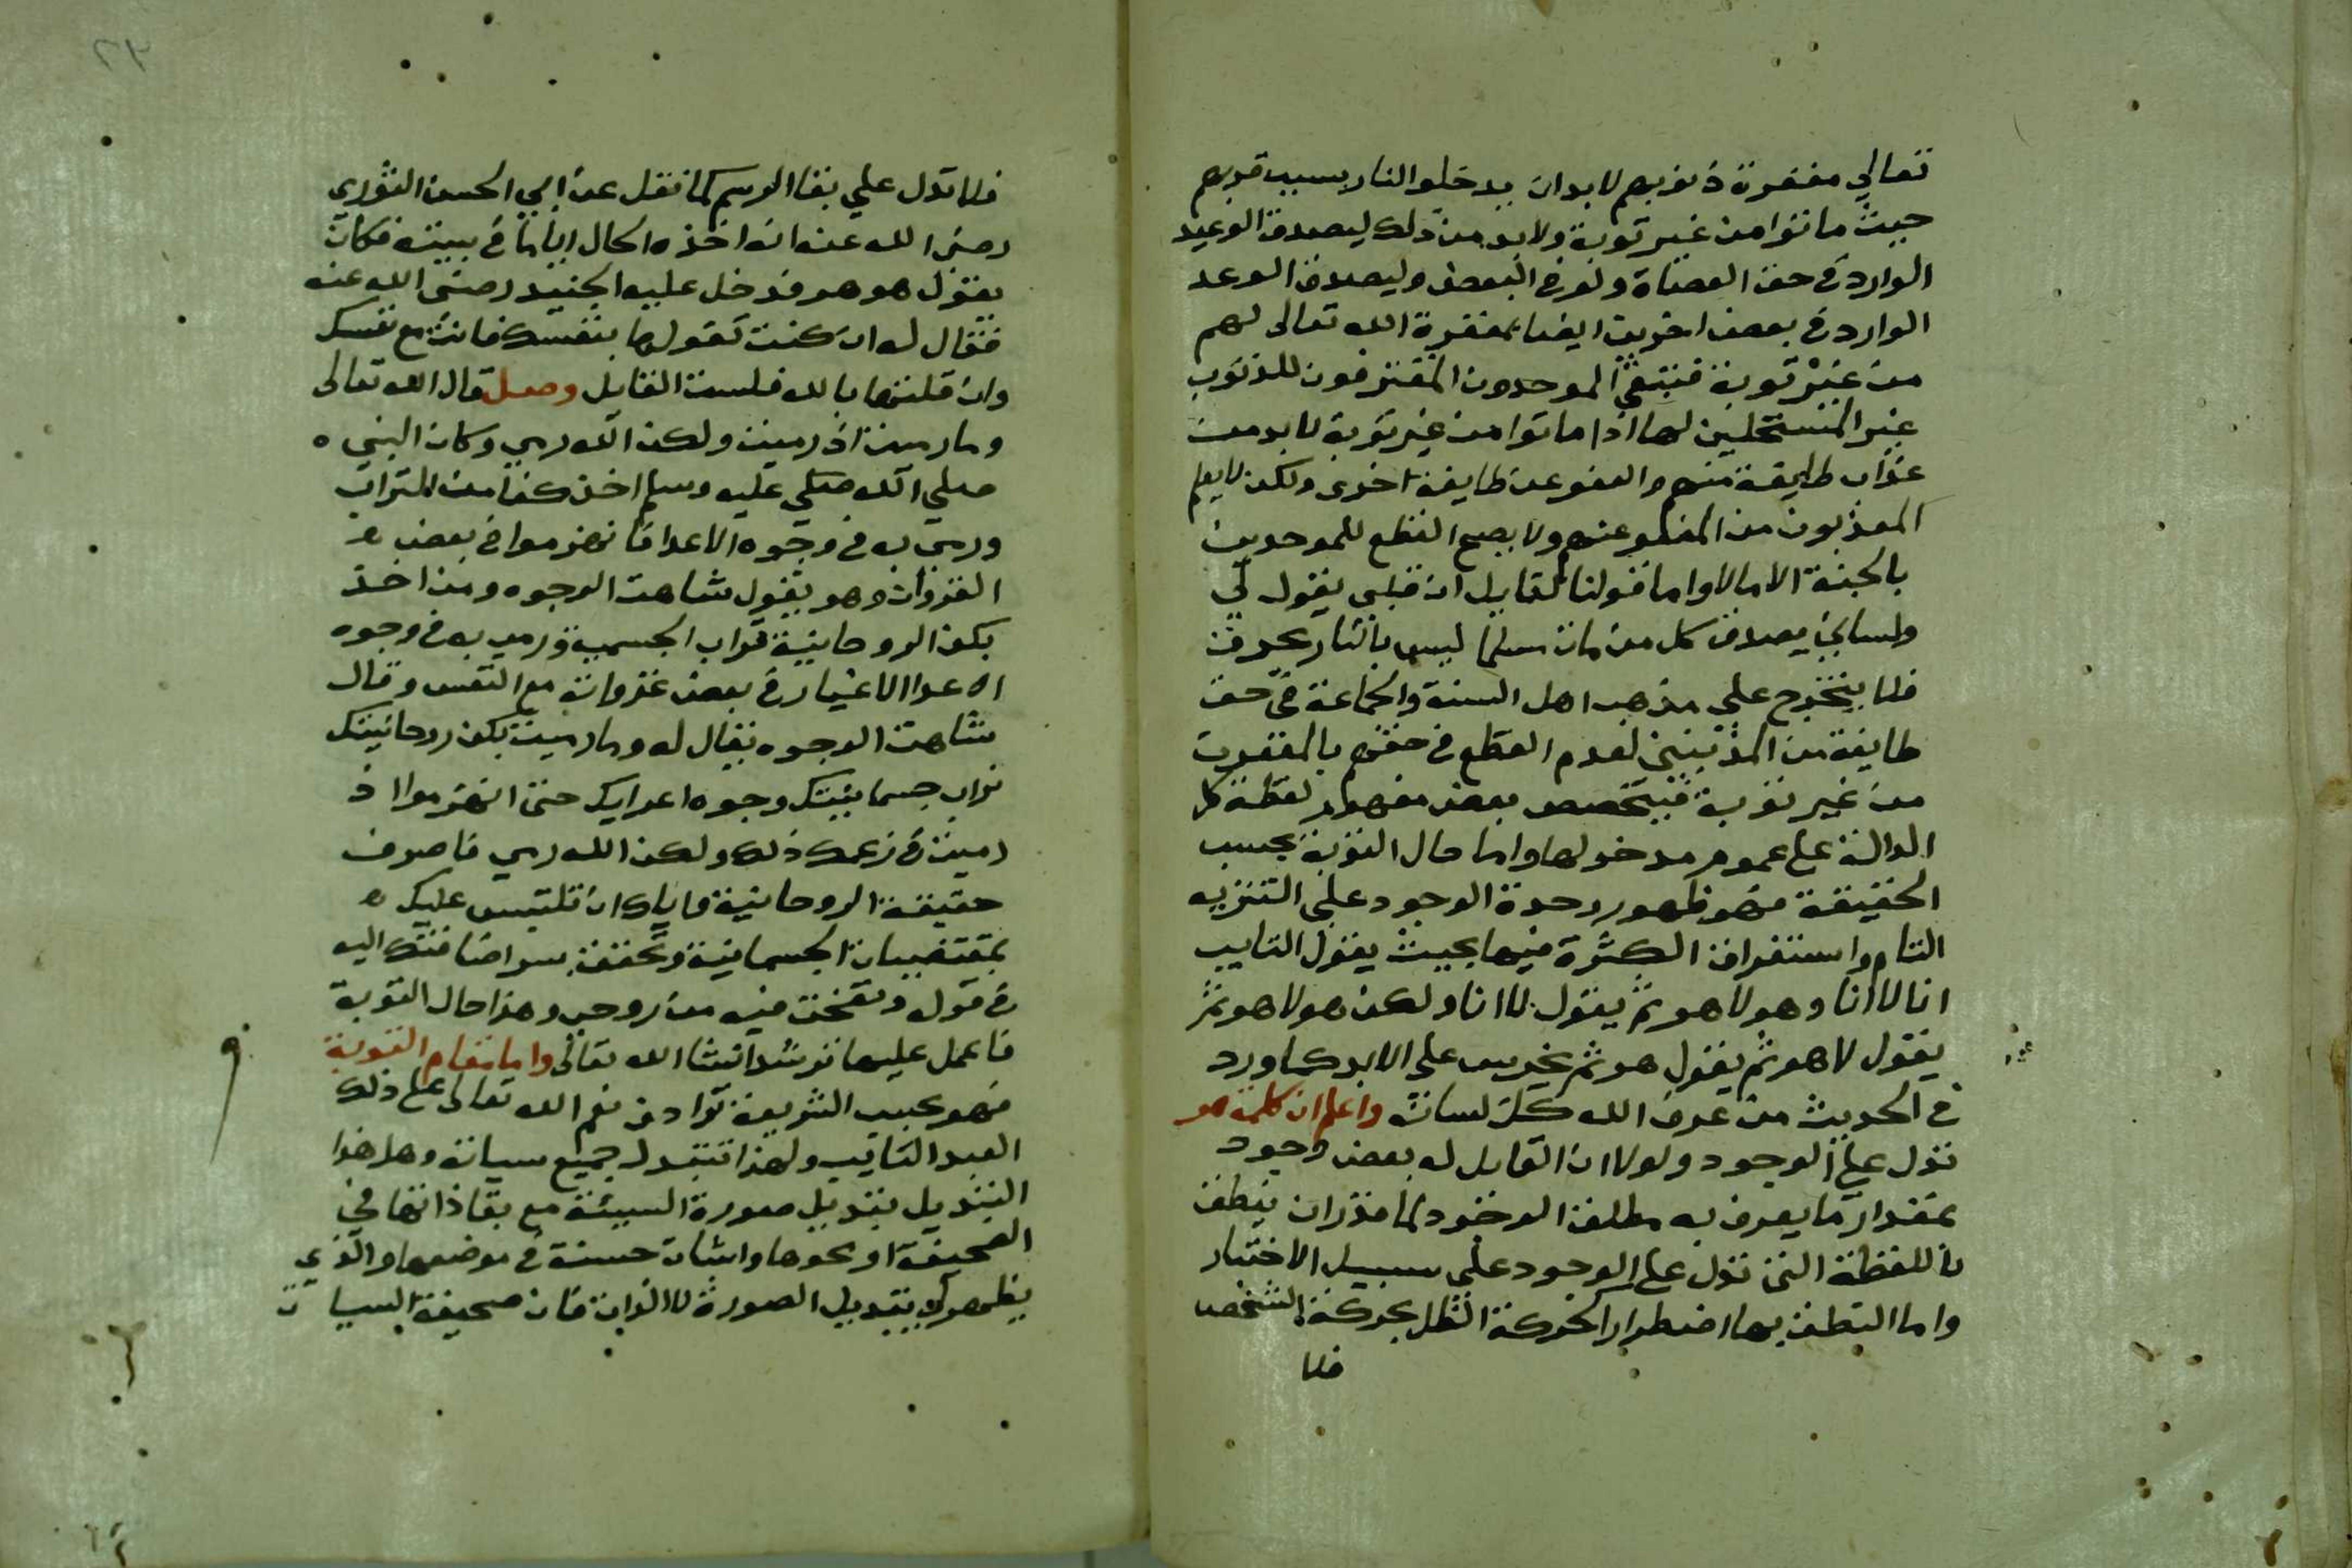 تعالي مغفرة ذنوبهم لا بد ان يدخلوا النار بسبب ذنوبهم
حيث ماتوا من غير توبة ولا بد من ذلك ليصدق الوعيد
الوارد في حق العصاة ولو في البعض وليصدق الوعد
الوارد في بعض اخرين ايضا بمغفرة الله تعالى لهم
من غير توبة فيبقي الموحدون المقترفون للذنوب
غير المستحلين لها اذا ماتوا من غير توبة لا بد من
عذاب طايفة منهم والعفو عن طايفة اخرى ولكن لا يعلم
المعذبون من المعفو عنهم ولا يصح القطع للموحدين
بالجنة الا مالا واما قولنا لقايل ان قلبي يقول لي
ولساني يصدق كل من مات مسلما ليس بالنار يحرق
فلا يتخرج علي مذهب اهل السنة والجماعة في حق
طايفة من المذنبين لعدم القطع في حقهم بالمغفرة
من غير توبة فيتخصص بعض مفهوم لفظة كل
الدالة على عموم مدخولها واما حال التوبة بحسب
الحقيقة فهو ظهور وحدة الوجود علي التنزيه
التام واستغراق الكثرة فيها بحيث يقول التايب
انا لا انا وهو لا هو ثم يقول لا انا ولكن هو لا هو ثم
يقول لا هو ثم يقول هو ثم يخرس علي الابد كما ورد
في الحديث من عرف الله كل لسانه واعلم ان كلمة هو
تدل علي الوجود ولولا ان القايل له بعض وجود
بمقدار ما يعرف به مطلق الوجود لما قدر ان ينطق
باللفظة التي تدل على الوجود على سبيل الاختيار
واما النطق بها اضطرارا كحركة الظل بحركة الشخص
فلا
٢٣
فلا تدل علي بقا الرسم كما نقل عن ابي الحسن النوري
رضي الله عنه انه اخذه الحال اياما في بيته فكان
يقول هو هو فدخل عليه الجنيد رضي الله عنه
فقال له ان كنت تقولها بنفسك فانت مع نفسك
وان قلتها بالله فلست القايل وصل قال الله تعالى
وما رميت اذ رميت ولكن الله رمي وكان النبي ه
صلي الله صلي عليه وسلم اخذ كفا من التراب
ورمي به في وجوه الاعدا فانهزموا في بعض ه
الغزوات وهو يقول شاهت الوجوه ومن اخذ
بكف الروحانية تراب الجسمية ورمي به في وجوه
الاعدا الاغيار في بعض غزواته مع النفس وقال
شاهت الوجوه يقال له وما رميت بكف روحانيتك
تراب جسمانيتك وجوه اعدايك حتى انهزموا اذ
رميت في زعمك ذلك ولكن الله رمي فاصرف
حقيقة الروحانية واياك ان تلتبس عليك ه
بمقتضيات الجسمانية وتحقق بسر اضافتك اليه
في قوله ونفخت فيه من روحي وهذا حال التوبة
فاعمل عليها ترشد انشا الله تعالى واما مقام التوبة
فهو بحسب الشريعة توادف نعم الله تعالى على ذلك
العبد التايب ولهذا تتبدل جميع سياته وهل هذا
التبديل بتبديل صورة السيئة مع بقا ذاتها في
الصحيفة او بمحوها واثبات حسنة في موضعها والذي
يظهر لي بتبديل الصورة لا الذات فان صحيفة السيات